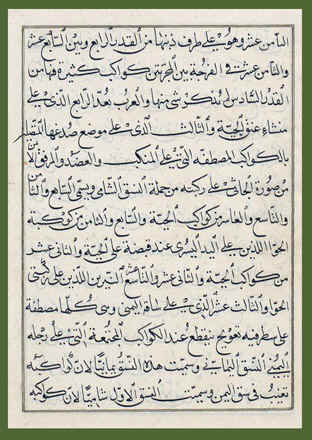 الثامن عشر وهو على طرف ذنبها من القدر الرابع وبين السابع عشر
والثامن عشر في الفرجة بين الجزئين كواكب كثيرة فيها من
القدر السادس لم يذكر شيء منها والعرب تعد الرابع الذي على
منشاء عنق الحية والثالث الذي على موضع صدغها
بالكواكب المصطفة التي على المنكب والعضد والمرفق الأيمن
من صورة الجاثي على ركبته من جملة النسق الشامي ويسمى السابع والثامن
والتاسع والعاشر من كواكب الحية والسابع والثامن من كوكبة
الحوا اللذين على اليد اليسرى عند قبضه على الحية والثاني عشر
من كواكب الحية والثاني عشر والتاسع النيرين اللذين على ركبتي
الحوا والثالث عشر الذي على ساقه اليمنى وهي كلها مصطفة
على سطر فيه تعويج ينقطع عند الكواكب المجتمعة التي على رجله
اليمنى النسق اليماني وسميت هذه النسق يمانيا لأن كواكبه
تغيب في شق اليمن وسميت النسق الأول شاميا لأن كواكبه